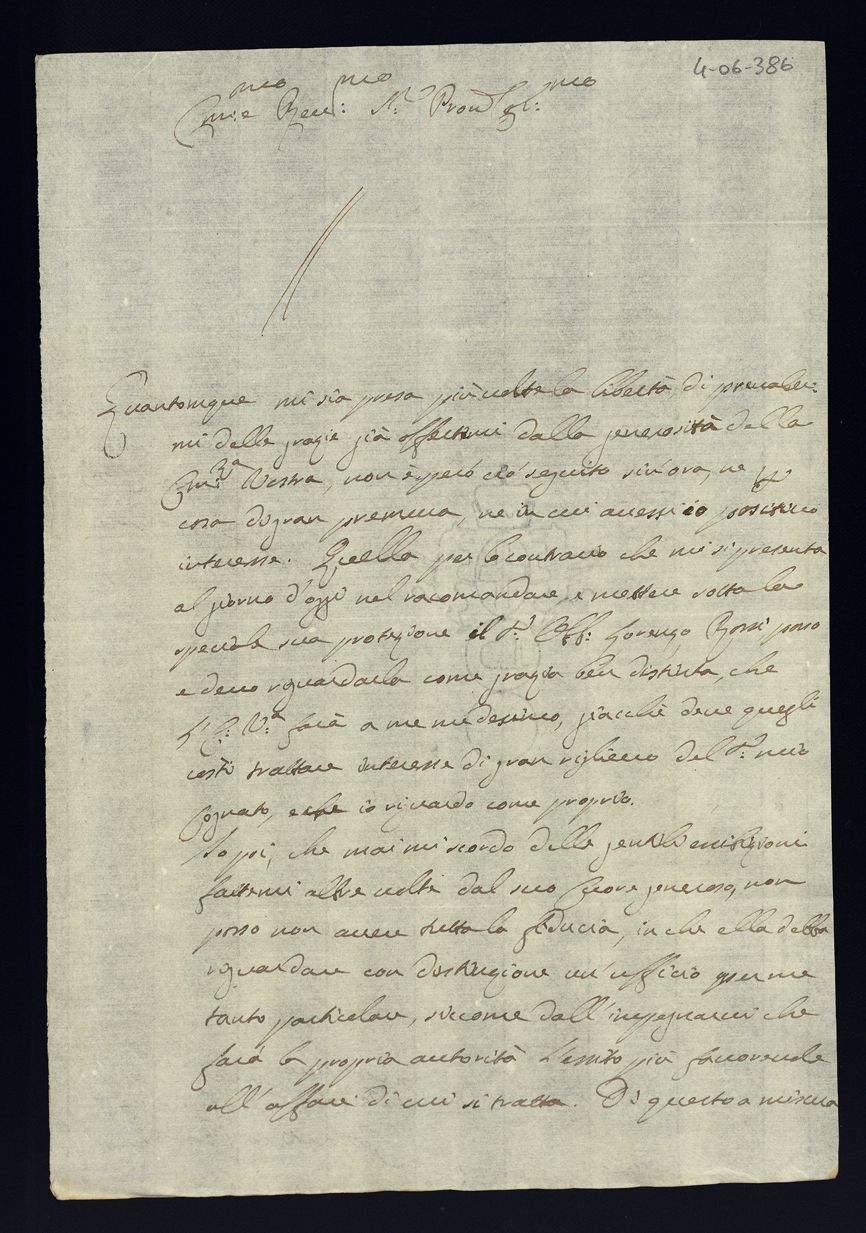 4-06-386
Em:e Rev:mo Sr: Pron Col:mo
Quantonque mi sia presa più volte la libertà di prevaler:
mi delle grazie già offertemi dalla generosità della
Em:za Vostra, non è però ciò seguito sin'ora, ne p
cosa di gran premura, ne in cui avessi io positivo
interesse. Quella per lo contrario che mi si presenta
al giorno d'oggi nel racomandare, e mettere sotto la
speciale sua protezione il Sr: Uff: Lorenzo Rossi posso
e devo riguardarla come grazia ben distinta, che
l'E: V:a farà a me medesimo, giacchè deve quegli
costì trattare interesse di gran riglievo del Sr: mio
Cognato, e che io riguardo come proprio.
Io poi, che mai mi scordo delle gentili esibizioni
fattemi altre volte dal suo Cuore generoso, non
posso non avere tutta la fiducia, in che ella debba
riguardare con distinzione un'ufficio per me
tanto particolare, siccome dall'impegnarvi che
farà la propria autorità l'esito più favorevole
all'affare di cui si tratta. Di questo a misura